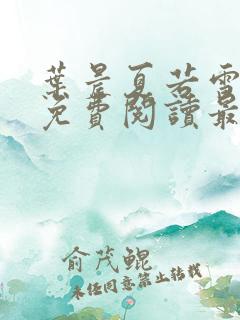 葉晨夏若雪
免費閱讀最
俞茂鲲
未经同意禁止转载